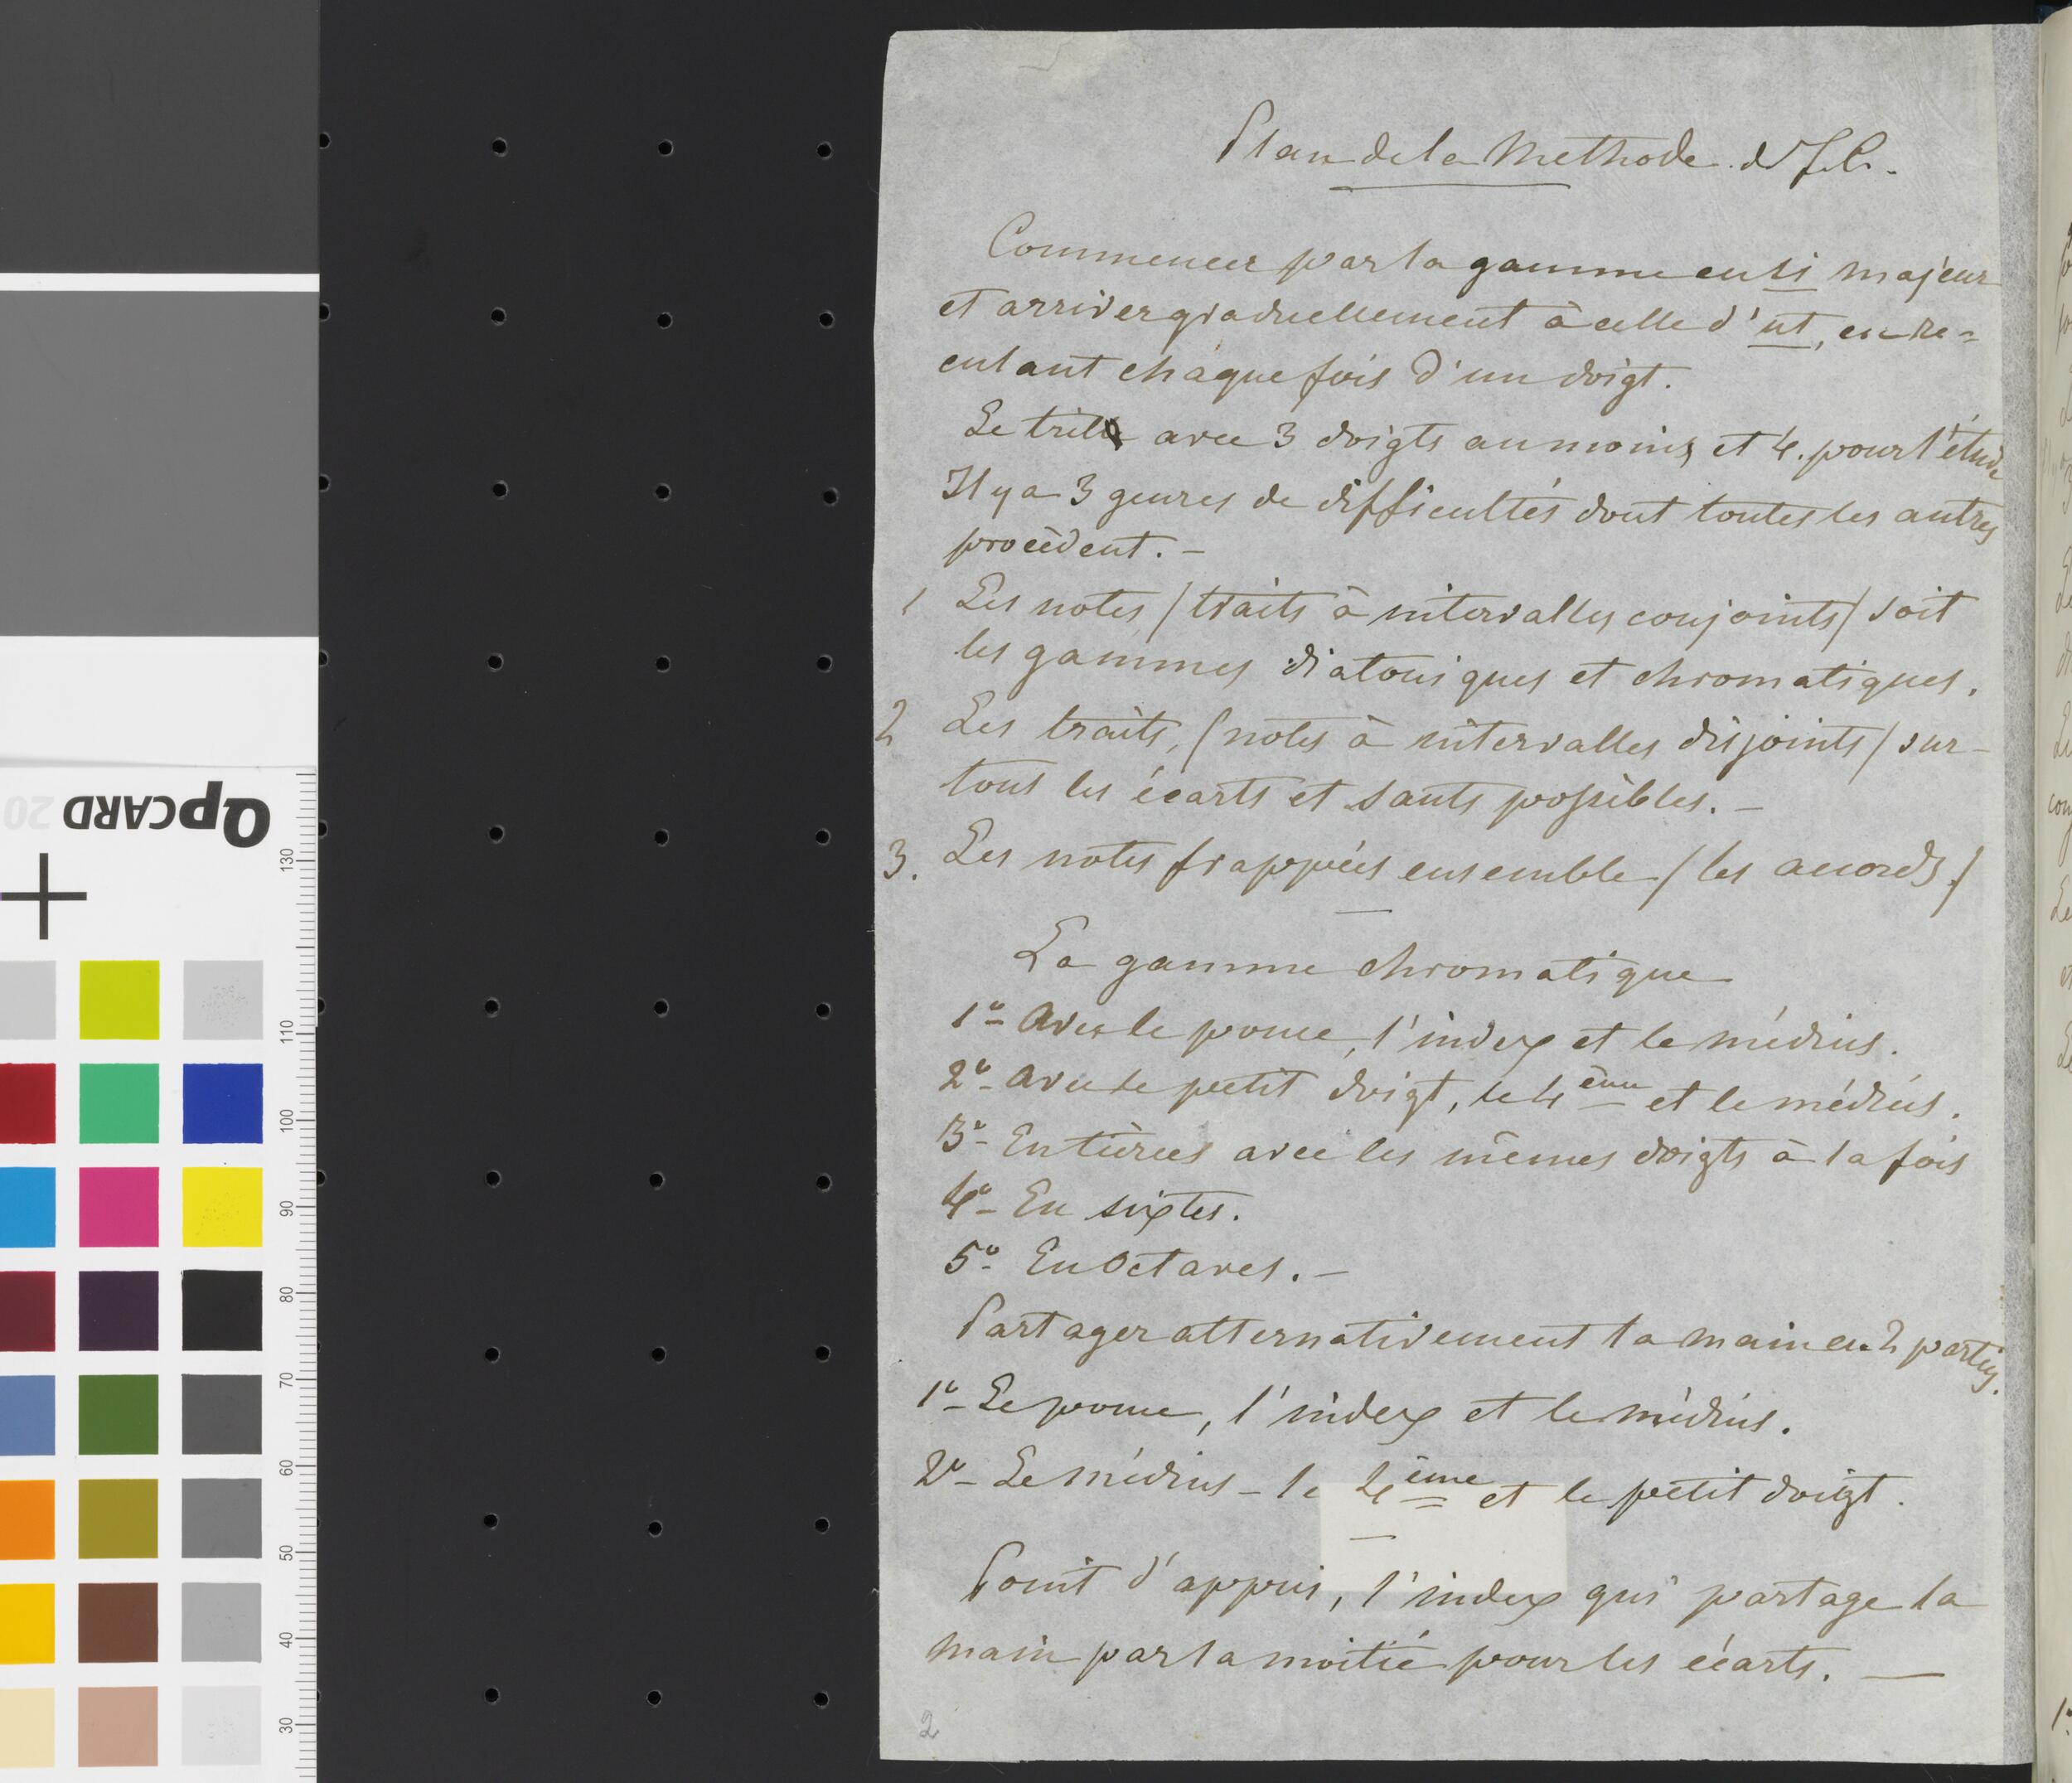 Plan de la Methode de F.C.
Commencer par la gamme en si majeur
et arriver graduellement à celle d'ut, en re=
culant chaque fois d'un doigt.
Le trille avec 3 doigts au moins et 4. pour l'étude
Il y a 3 genres de difficultés dont toutes les autres
procèdent. —
1 Les notes (traits à intervalles conjoints) soit
les gammes diatoniques et chromatiques.
2 Les traits, (notes à intervalles disjoints) sur-
tout les écarts et sauts possibles. —
3. Les notes frappées ensemble (les accords.)
La gamme chromatique
1º- Avec le pouce, l'index et le médius.
2º- Avec le petit doigt, le 4ème et le médius.
3º- En tierces avec les mêmes doigts à la fois
4º- En sixtes.
5º- En Octaves. —
Partager alternativement la main en 2 parties.
1º- Le pouce, l'index et le médius.
2º- Le médius – le 4ème et le petit doigt.
Point d'appui, l'index qui partage la
main par la moitié pour les écarts. —
2
QPCARD 20
130
110
100
90
80
70
60
50
40
30